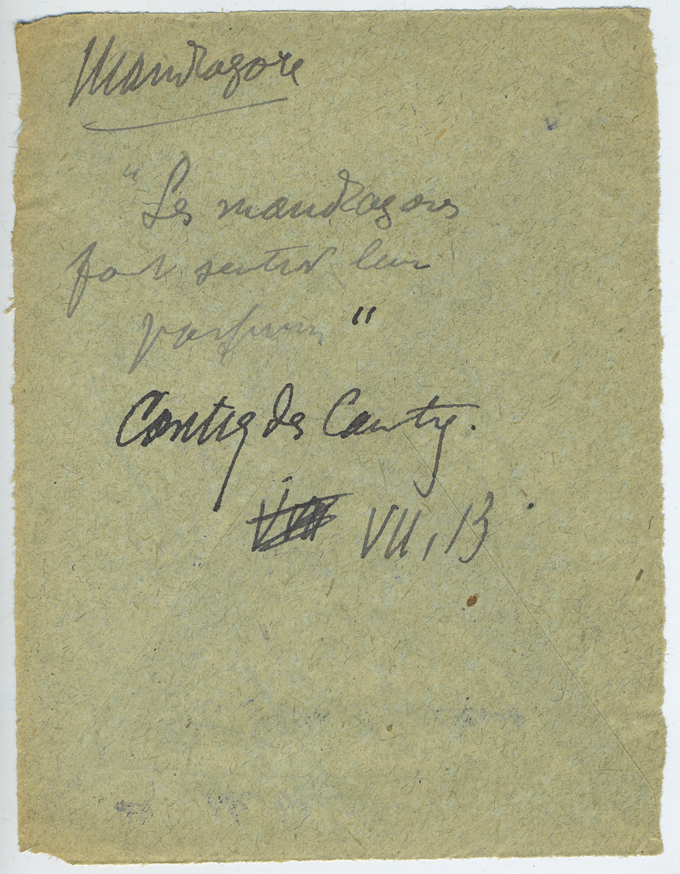 Mandragore
"Les mandragores
font sentir leur
parfum"
Cantiq des Cantiq.
VII, 13